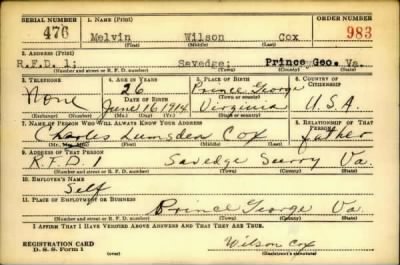 SERIAL NUMBER 1. NAME (Print) ORDER NUMBER
476 Melvin Wilson Cox 983
(First) (Middle) (Last)
2. ADDRESS (Print)
R.F.D. 1; Savedge; Prince Geo. Va.
(Number and street or R. F. D. number) (Town) (County) (State)
3. TELEPHONE 4. AGE IN YEARS 5. PLACE OF BIRTH 6. COUNTRY OF CITIZENSHIP
None 26 Prince George
DATE OF BIRTH (Town or county)
June 16 1914 Virginia U.S.A.
(Exchange) (Number) (Mo.) (Day) (Yr.) (State or country)
7. NAME OF PERSON WHO WILL ALWAYS KNOW YOUR ADDRESS 8. RELATIONSHIP OF THAT PERSON
Charles Lumsden Cox father
(Mr., Mrs., Miss) (First) (Middle) (Last)
9. ADDRESS OF THAT PERSON
R.F.D. 1 Savedge Surry Va.
(Number and street or R. F. D. number) (Town) (County) (State)
10. EMPLOYER'S NAME
Self
11. PLACE OF EMPLOYMENT OR BUSINESS
Prince George Va
(Number and street or R. F. D. number) (Town) (County) (State)
I AFFIRM THAT I HAVE VERIFIED ABOVE ANSWERS AND THAT THEY ARE TRUE.
REGISTRATION CARD
D. S. S. Form 1 Wilson Cox